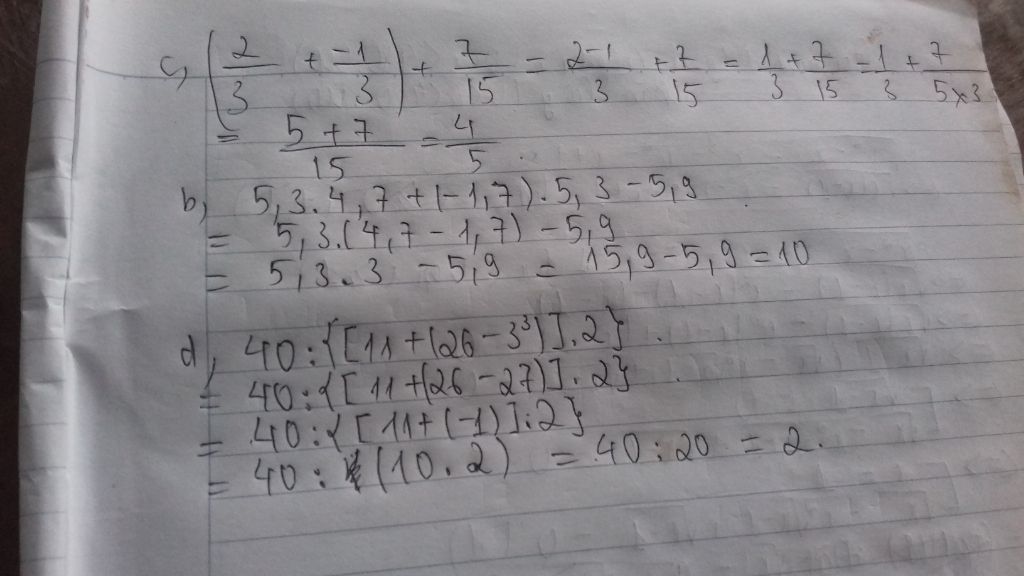 c, (2/3 + -1/3) + 7/15 = 2-1/3 + 7/15 = 1/3 + 7/15 = 1/3 + 7/5×3
= 5+7/15 = 4/5.
b, 5,3.4,7 + (-1,7).5,3 - 5,9
= 5,3.(4,7 - 1,7) - 5,9
= 5,3.3 - 5,9 = 15,9 - 5,9 = 10
d, 40:{[11+(26-3³)].2}.
= 40:{[11+(26-27)].2}.
= 40:{[11+(-1)]:2}
= 40: (10.2) = 40:20 = 2.